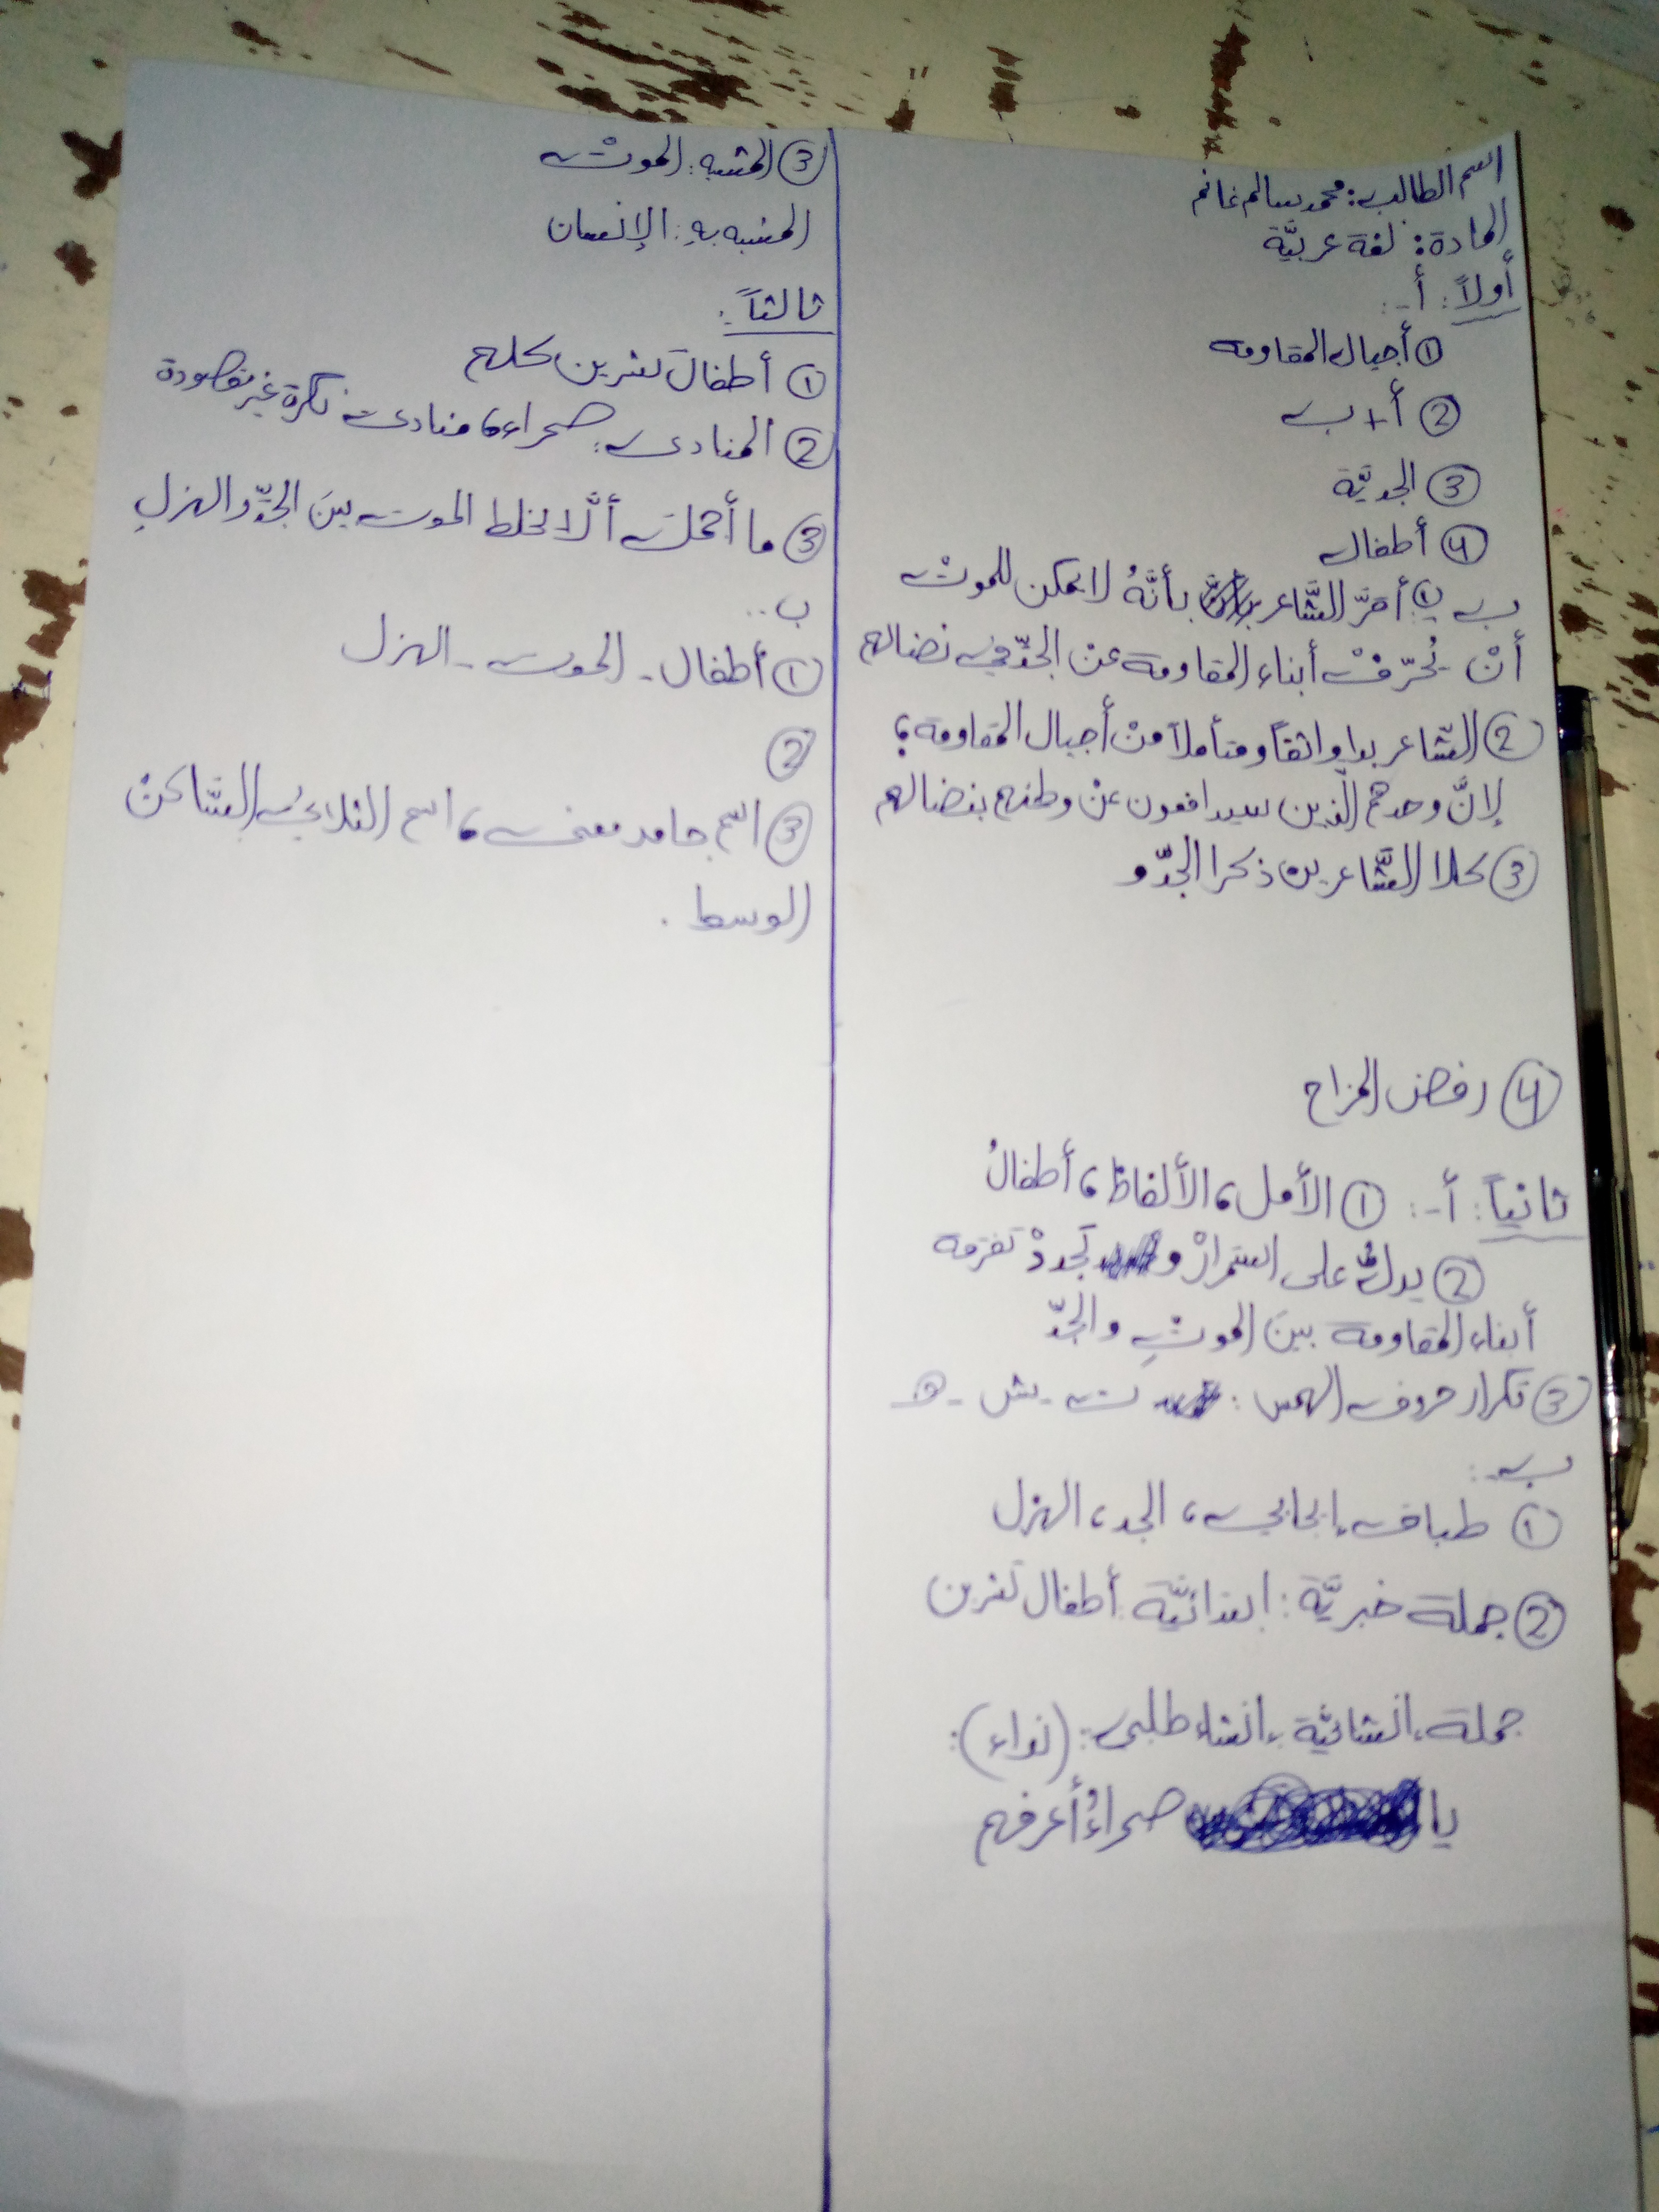 اسم الطالب: محمد سالم غانم
المادة: لغة عربيَّة
أولاً: أ-:
① أجيال المقاومة
② أ + ب
③ الجديَّة
④ أطفال
ب- ① أقرَّ الشَّاعر بأنَّهُ لا يمكن للموتْ
أنْ يُحرّفْ أبناء المقاومة عنْ الجدّ في نضالهم
② الشّاعر بدا واثقاً ومتأملاً منْ أجيال المقاومة؛
لإنَّ وحدهم الّذين سيدافعون عنْ وطنهم بنضالهم
③ كلا الشَّاعرين ذكرا الجدّ و
④ رفض المزاح
ثانياً: أ-: ① الأمل، الألفاظ، أطفالُ
② يدلُّ على استمرارْ و تجددْ تفرقة
أبناء المقاومة بينَ الموتِ والجدّ
③ تكرار حروف الهمس: ت - ش - ه
ب-:
① طباق إيجابي، الجد، الهزل
② جملة خبريَّة: ابتدائيَّة: أطفال تشرين
جملة إنشائيَّة: إنشاء طلبي: (نداء):
يا صحراءُ أعرفهم
③ المشبه: الموتْ
المشبه بهِ: الإنسان
ثالثاً:
① أطفالَ تشرين كلهم
② المنادى: صحراء، منادى نكرة غير مقصودة
③ ما أجملَ ألَّا يخلط الموت بينَ الجدِّ والهزلِ
ب-:
① أطفال - الموت - الهزل
②
③ اسم جامد معنى، اسم الثلاثيُّ السَّاكنْ
الوسط.